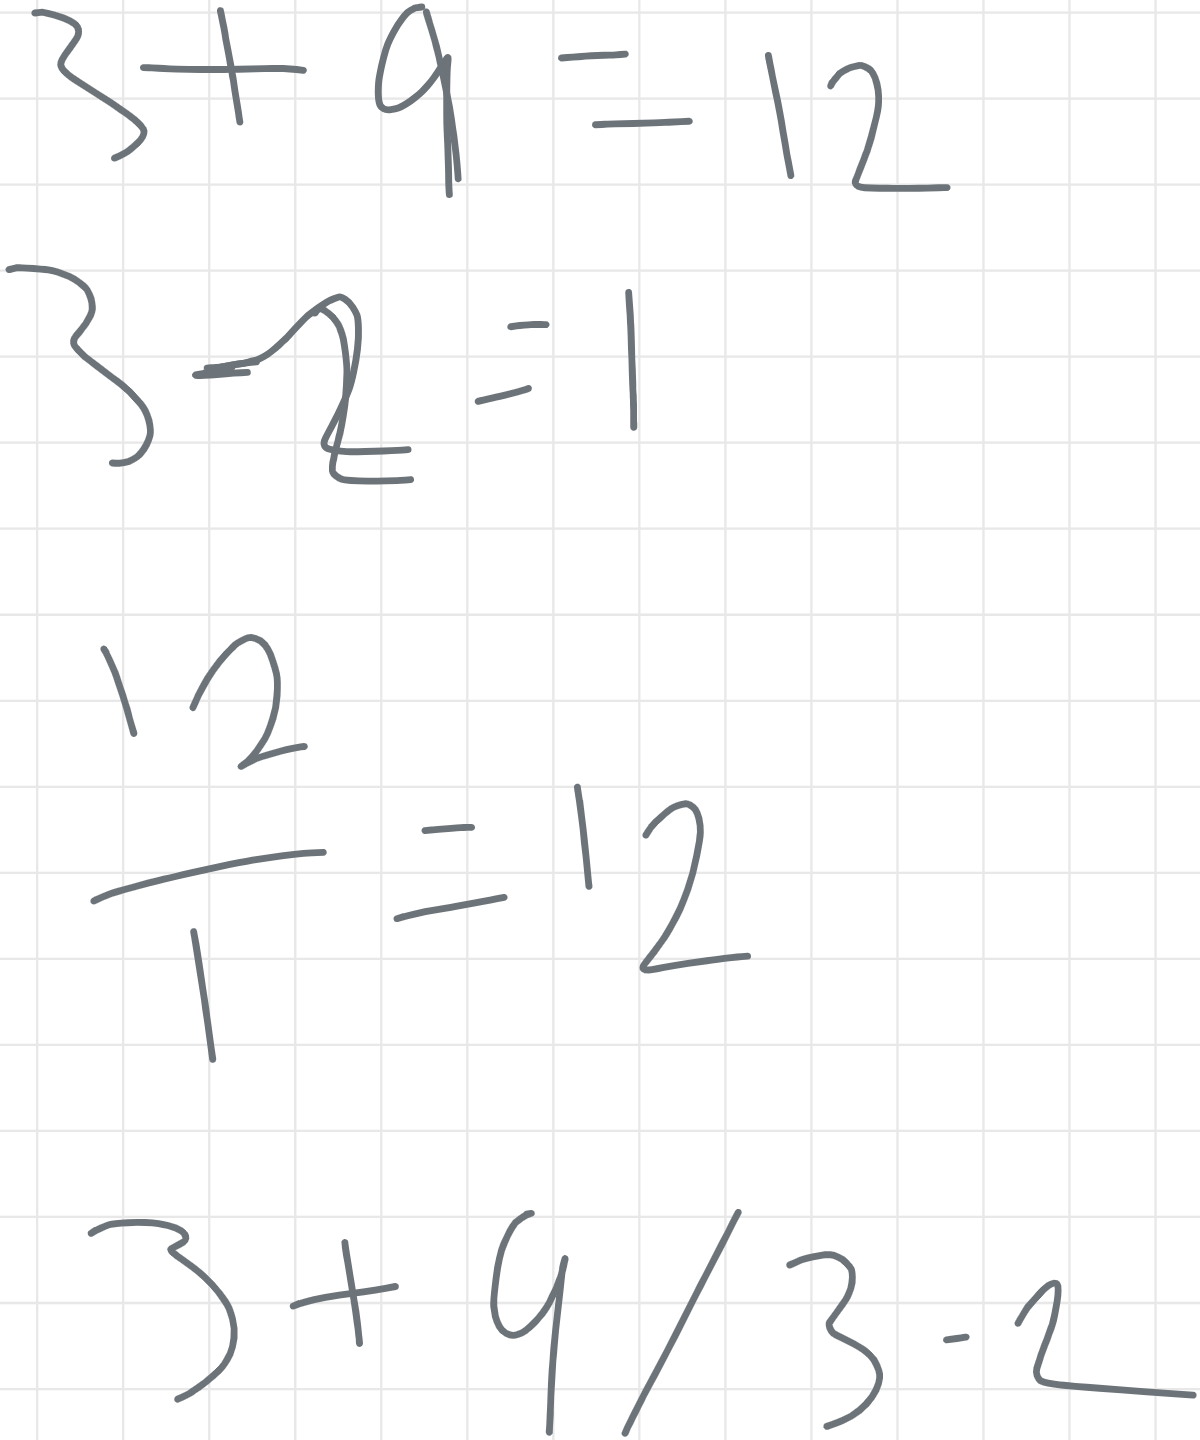 3 + 9 = 12
3 - 2 = 1
12
1
= 12
3 + 9 / 3 - 2